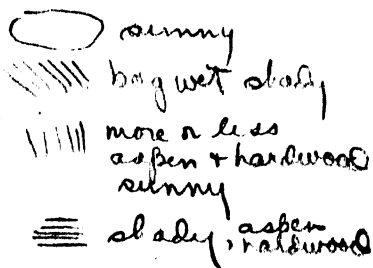 sunny
bog wet shady
more or less
aspen + hardwood
sunny
shady, aspen
hardwood